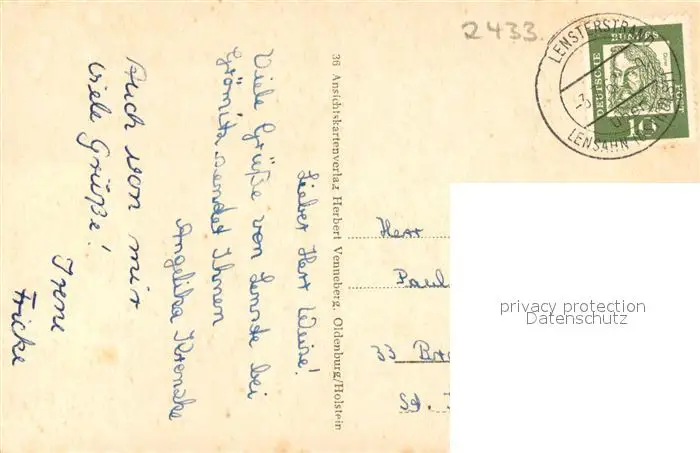 2433.
LENSTERSTRAND
LENSAHN
DEUTSCHE
BUNDESPOST
10
Lieber Herr Weise!
Viele Grüße von Lenste bei
Grömitz sendet Ihnen
Angelika
Auch von mir
viele Grüße!
Irene
Fricke
36 Ansichtskartenverlag Herbert Venneberg, Oldenburg/Holstein
Herr
Paul
33
privacy protection
Datenschutz